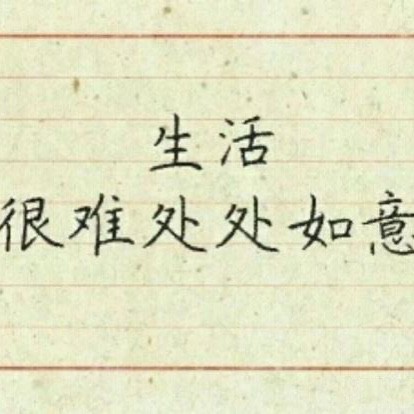 生活
很难处处如意